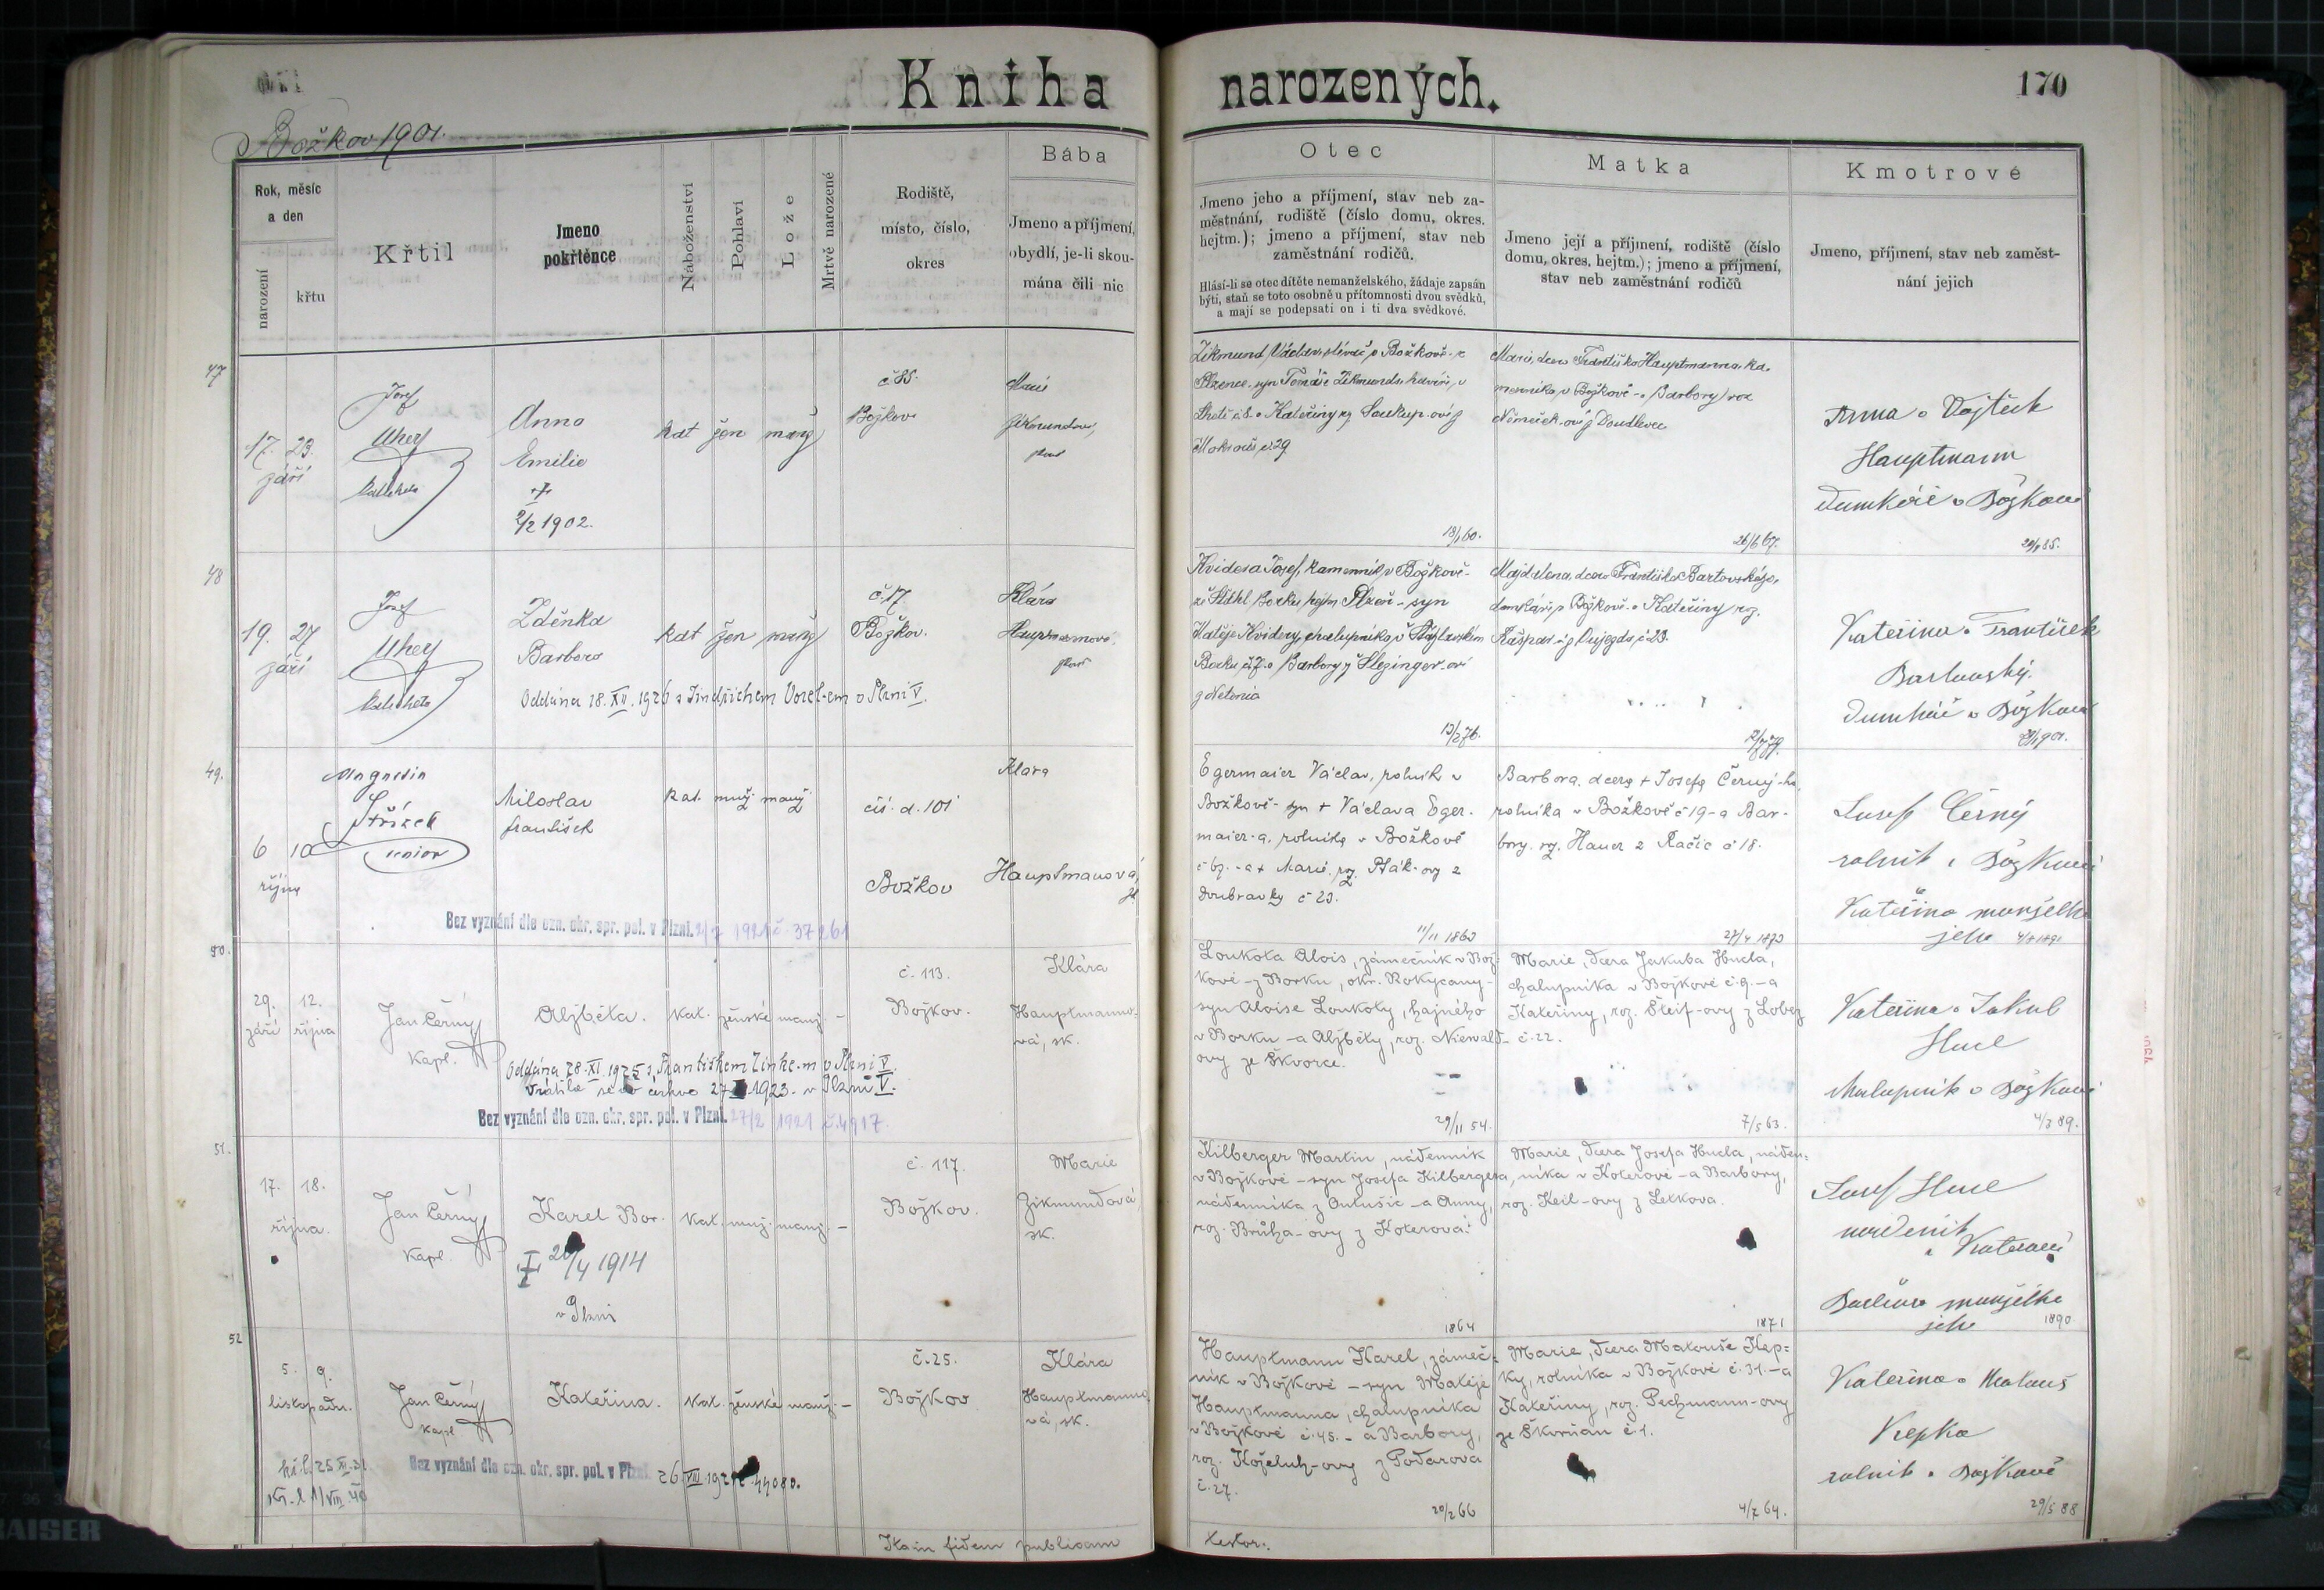 Kniha narozených.
170
Božkov 1901.
Rok, měsíc
a den
narození
křtu
Křtil
Jmeno
pokřtěnce
Náboženství
Pohlaví
Lože
Mrtvě narozené
Rodiště,
místo, číslo,
okres
Bába
Jmeno a příjmení,
obydlí, je-li skou-
mána čili nic
Otec
Jmeno jeho a příjmení, stav neb za-
městnání, rodiště (číslo domu, okres.
hejtm.); jmeno a příjmení, stav neb
zaměstnání rodičů.
Hlásí-li se otec dítěte nemanželského, žádaje zapsán
býti, staň se toto osobně u přítomnosti dvou svědků,
a mají se podepsati on i ti dva svědkové.
Matka
Jmeno její a příjmení, rodiště (číslo
domu, okres. hejtm.); jmeno a příjmení,
stav neb zaměstnání rodičů
Kmotrové
Jmeno, příjmení, stav neb zaměst-
nání jejich
47
17. 23.
září
Josef
Uher
katecheta
Anna
Emilie
2/2 1902.
kat žen manž
č 85.
Božkov
Marie
Zikmundová,
Zikmund Václav, slévač v Božkově - z
Plzence, syn Tomáše Zikmunda, havíře, v
Lhotě č. 8. a Kateřiny roz. Soukup-ové z
Mokrouš č. 29
18/1 60.
Marie, dcera Františka Hauptmanna, ka-
menníka, v Božkově - a Barbory roz.
Němeček-ové z Doudlevec
26/6 67.
Anna a Vojtěch
Hauptmann
domkáři v Božkově
48
19. 27
září
Josef
Uher
katecheta
Zděnka
Barbora
Oddána 18. XII. 1926 s Jindřichem Vozel-em v Plzni V.
kat žen manž
č. 17.
Božkov.
Klára
Hauptmanová
Kvidera Josef, kamenník v Božkově -
ze Šťáhl. Borku, hejtm. Plzeň - syn
Matěje Kvidery, chalupníka v Šťáhlavském
Borku č. 7. a Barbory z Slezinger-ovi
z Netonic
13/2 76.
Majdalena, dcera Františka Bartovského,
domkáře v Božkově - a Kateřiny roz.
Kašpar-ové z Oujezda, č 23.
Kateřina a František
Bartovský.
domkář v Božkově
49.
6 10
října
Augustin
Střízek
senior
Miloslav
František
Bez vyznání dle ozn. okr. spr. pol. v Plzni. 2/7 1921 č. 37261
kat. muž. manž
čís. d. 101
Božkov
Klára
Hauptmanová,
Egermaier Václav, rolník v
Božkově - syn + Václava Eger-
maier-a, rolníka v Božkově
- a + Marie, roz. Pták-ov z
Doubravky č 23.
11/11 1863
Barbora, dcera + Josefa Černý-ho,
rolníka v Božkově č 19 - a Bar-
bory, roz. Hauer z Račic č 18.
27/4 1873
Josef Černý
rolník v Božkově
Kateřina manželka
jeho
50.
29. 12.
září října
Jan Černý
kapl.
Alžběta.
Oddána 28. XI. 1925 s Františkem Zinke-m v Plzni V.
Vrátila se do církve 27 1923. v Plzni V.
Bez vyznání dle ozn. okr. spr. pol. v Plzni. 27/2 1921 č. 4917.
kat. ženské manž. -
č. 113.
Božkov.
Klára
Hauptmanno-
vá, sk.
Loukota Alois, zámečník v Bož-
kově - z Borku, okr. Rokycany -
syn Aloise Loukoty, hajného
v Borku - a Alžběty, roz. Niewald-
ovy ze Škvorce.
29/11 54.
Marie, dcera Jakuba Hucla,
chalupníka v Božkově č. 9. - a
Kateřiny, roz. Šteif-ovy z Lobez
č. 22.
7/5 63.
Kateřina a Jakub
Hucl
chalupník v Božkově
4/3 89.
51.
17. 18.
října.
Jan Černý
kapl.
Karel Bor.
20/4 1914
v Plzni
kat. muž. manž. -
č. 117.
Božkov.
Marie
Zikmundová,
sk.
Kilberger Martin, nádenník
v Božkově - syn Josefa Kilbergera,
nádenníka z Outušic - a Anny,
roz. Brůha-ovy z Koterova.
1864
Marie, dcera Josefa Hucla, náden-
níka v Koterově - a Barbory,
roz. Keil-ovy z Letkova.
1871
Josef Hucl
nádeník
v Koterově
Barbora manželka
jeho
1890
52
5. 9.
listopadu.
Jan Černý
kapl
Kateřina.
kř. l. 25 XI. 21
Bez vyznání dle ozn. okr. spr. pol. v Plzni 26 VIII. 1921 č. 44080.
kat. ženské manž. -
č. 25.
Božkov
Klára
Hauptmanno-
vá, sk.
Hauptmann Karel, zámeč-
ník v Božkově - syn Matěje
Hauptmanna, chalupníka
v Božkově č. 45. - a Barbory,
roz. Koželuh-ovy z Poďarova
č. 27.
20/2 66
Marie, dcera Matouše Kep-
ky, rolníka v Božkově č. 31. - a
Kateřiny, roz. Pechmann-ovy
ze Škvrňan č. 1.
4/7 64.
Kateřina a Matouš
Kepka
rolník v Božkově
29/5 88
Ita in fidem publicam
testor.